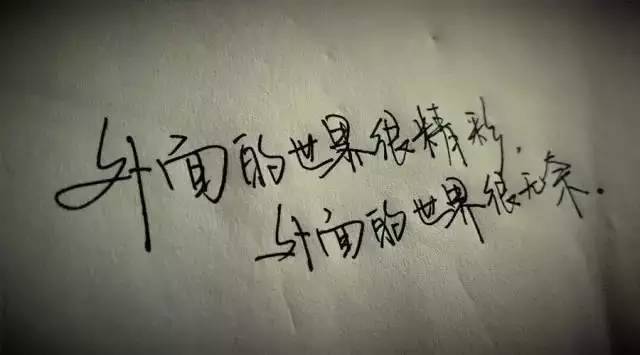 外面的世界很精彩,
外面的世界很无奈.